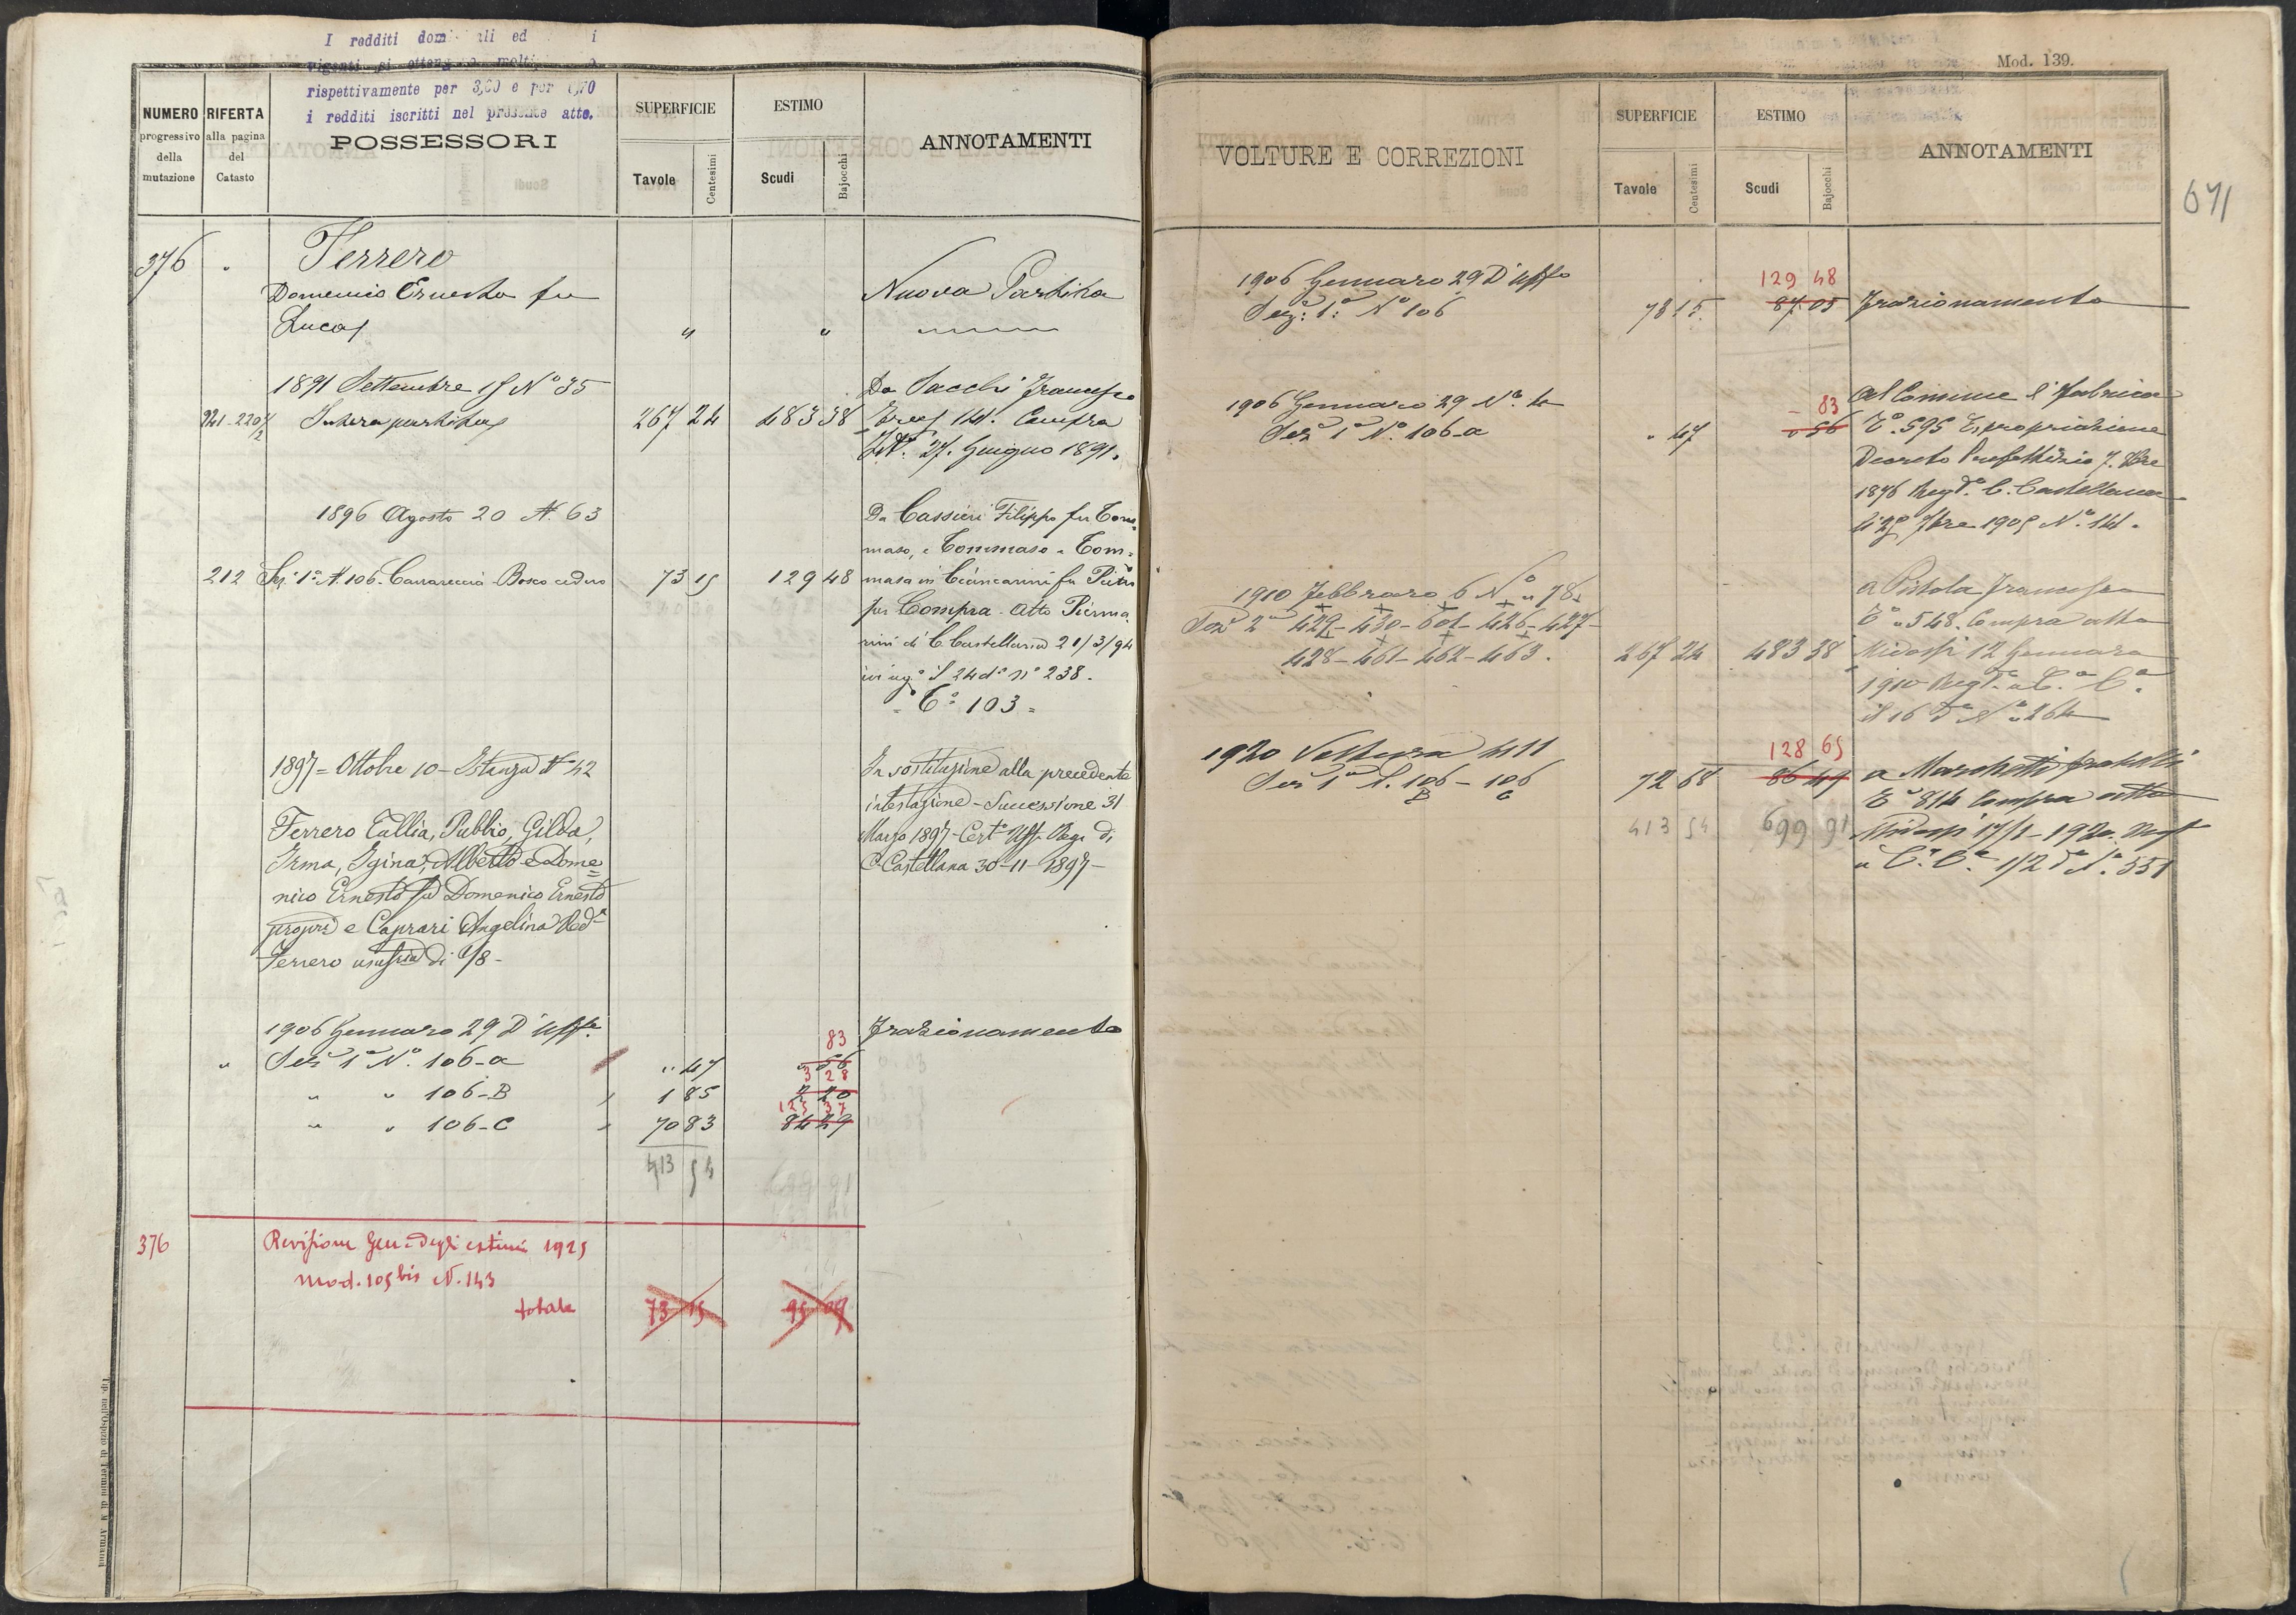 I redditi dom ali ed i
vigenti si otteng o molti a
rispettivamente per 3,60 e per 0,70
i redditi iscritti nel presente atto.
NUMERO progressivo della mutazione
RIFERTA alla pagina del Catasto
POSSESSORI
SUPERFICIE
Tavole Centesimi
ESTIMO
Scudi Bajocchi
ANNOTAMENTI
376 Ferrero
Domenico Ernesto fu Nuova Partita
Luca " "
1891 Settembre 15 N° 35 Da Sacchi Francesco
221-220 1/2 Intera partita 267 24 483 38 114. Compra
27. Giugno 1891.
1896 Agosto 20 N. 63 Da Cassieri Filippo fu Tom=
maso, e Tommaso e Tom=
212 Sez. 1a N. 106. Carrareccia Bosco ceduo 73 15 129 48 masa in Ciancarini fu Pietro
per Compra - Atto Pierma
rini di C. Castellana 21/3/94
ivi reg° il 24 d° n° 238.
= C° 103 =
1897 = Ottobre 10 - Istanza N° 42 In sostituzione alla precedente
intestazione - Successione 31
Ferrero Tullia, Publio, Gilda, Marzo 1897 - Cert° Uff. Reg. di
Irma, Igina, Alberto e Dome= C. Castellana 30-11-1897 -
nico Ernesto fu Domenico Ernesto
propri e Caprari Angelina Ved.a
Ferrero usufria di 1/8 -
1906 Gennaro 29 D'Uff° Frazionamento
83
" Sez 1a N° 106-a " 47 " 56
3 28
" " 106-B 1 85 2 20
125 37
" " 106-C 70 83 84 29
413 54 699 91
376 Revisione Gen. degli estimi 1925
Mod. 105 bis N. 143
totale 73 15 95 07
Tip. nell'Ospizio di Termini di M. Armanni
Mod. 139.
671
VOLTURE E CORREZIONI
SUPERFICIE
Tavole Centesimi
ESTIMO
Scudi Bajocchi
ANNOTAMENTI
1906 Gennaro 29 D'Uff° 129 48
Sez: 1a N° 106 73 15 87 05 Frazionamento
1906 Gennaro 29 N° 4 - 83 Al Comune di Fabrica
Sez 1a N° 106-a " 47 " 56 C° 595 Espropriazione
Decreto Prefettizio 7.
1876 Reg° C. Castellana
li 25 1905 N° 114.
1910 Febbraro 6 N° 78 a Pistola Francesco
Sez 2a 429-430-601-426-427- C° 548. Compra atto
428-461-462-463. 267 24 483 38 Midossi 12 Gennaro
1910 Reg° a C.a C.a
il 16 D° N° 264
1920 Voltura 411 128 65
Sez 1a N. 106 B - 106 C 72 68 86 49 a Marchetti fratelli
C° 814 Compra atto
413 54 699 91 Midossi 17/1-1920. Reg°
a C.a C.a 1/2 d° N°. 551